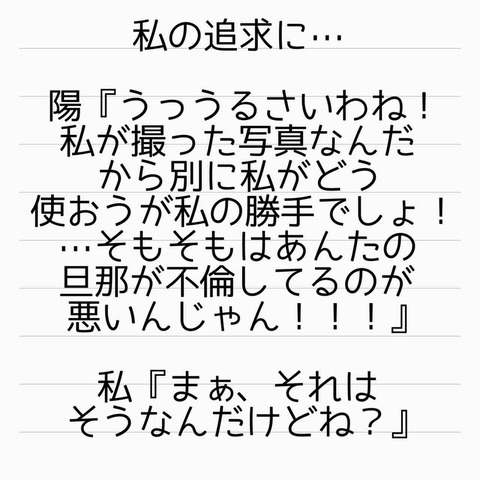 私の追求に…
陽『うっうるさいわね！
私が撮った写真なんだ
から別に私がどう
使おうが私の勝手でしょ！
…そもそもはあんたの
旦那が不倫してるのが
悪いんじゃん！！！』
私『まぁ、それは
そうなんだけどね？』